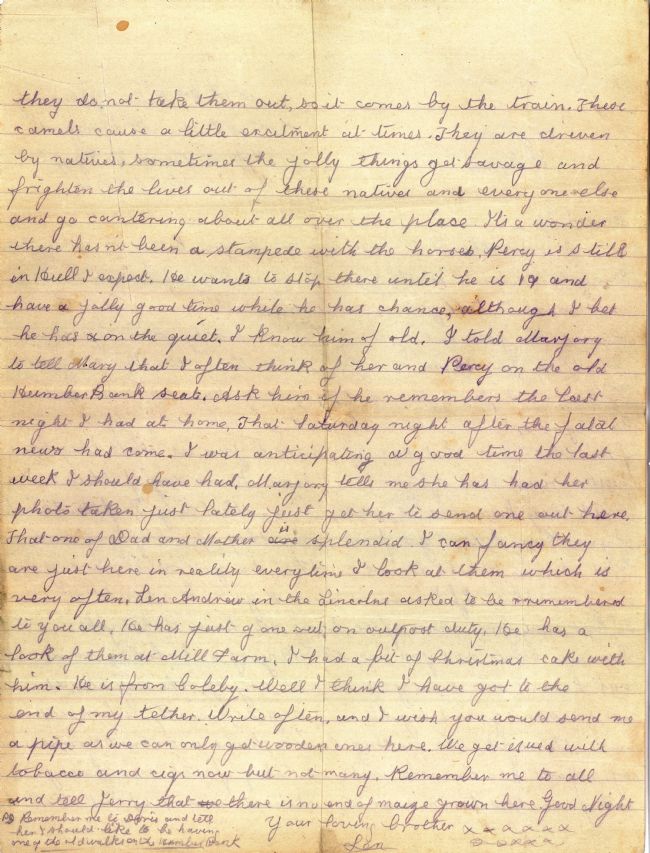 they do not take them out, so it comes by the train. These
camels cause a little excitment at times. They are driven
by natives, sometimes the jolly things get savage and
frighten the lives out of these natives and everyone else
and go cantering about all over the place. Its a wonder
there hasnt been a stampede with the horses. Percy is still
in Hull I expect. He wants to stop there until he is 19 and
have a jolly good time while he has chance, although I bet
he has x on the quiet. I know him of old. I told Marjory
to tell Mary that I often think of her and Percy on the old
Humber Bank seats. Ask him if he remembers the last
night I had at home, That Saturday night after the fatal
news had come. I was anticipating a good time the last
week I should have had, Marjory tells me she has had her
photo taken just lately just get her to send one out here.
That one of Dad and Mother is splendid. I can fancy they
are just here in reality everytime I look at them which is
very often. Len Andrew in the Lincolns asked to be rremembered
to you all. He has just gone out on outpost duty. He has a
look of them at Mill Farm. I had a bit of Christmas cake with
him. He is from Coleby. Well I think I have got to the
end of my tether. Write often, and I wish you would send me
a pipe as we can only get wooden ones here. We get issued with
tobacco and cigs now but not many. Remember me to all
and tell Jerry that there is no end of maize grown here. Good Night
Your loving brother x x x x x x
Len
PS Remember me to Doris and tell
her I should like to be having
one of the old walks on the Humber Bank